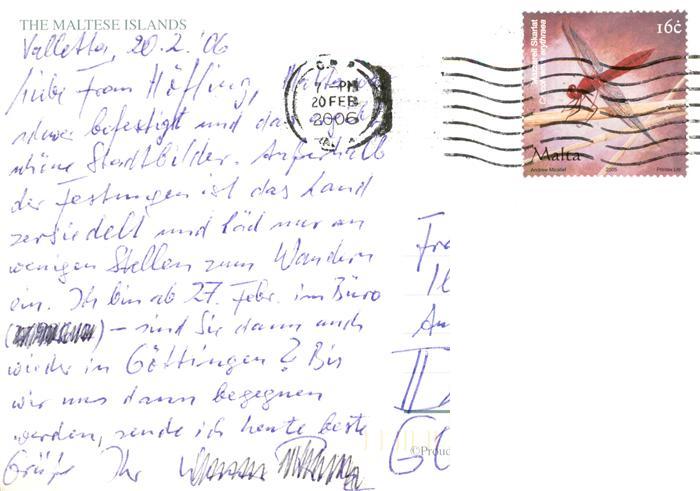 THE MALTESE ISLANDS
Valletta, 20.2.'06
Liebe Frau Höfling,
schwer befestigt und
schöne Stadtbilder. Außerhalb
der Festungen ist das Land
zersiedelt und läd nur an
wenigen Stellen zum Wandern
ein. Ich bin ab 27. Febr. im Büro
– sind Sie dann auch
wieder in Göttingen? Bis
wir uns dann begegnen
werden, sende ich heute beste
Grüße Ihr
7 - PM
20 FEB
2006
16c
Malta
Andrew Micallef
2005
Printex Ltd
Fra
An
D
©Proud